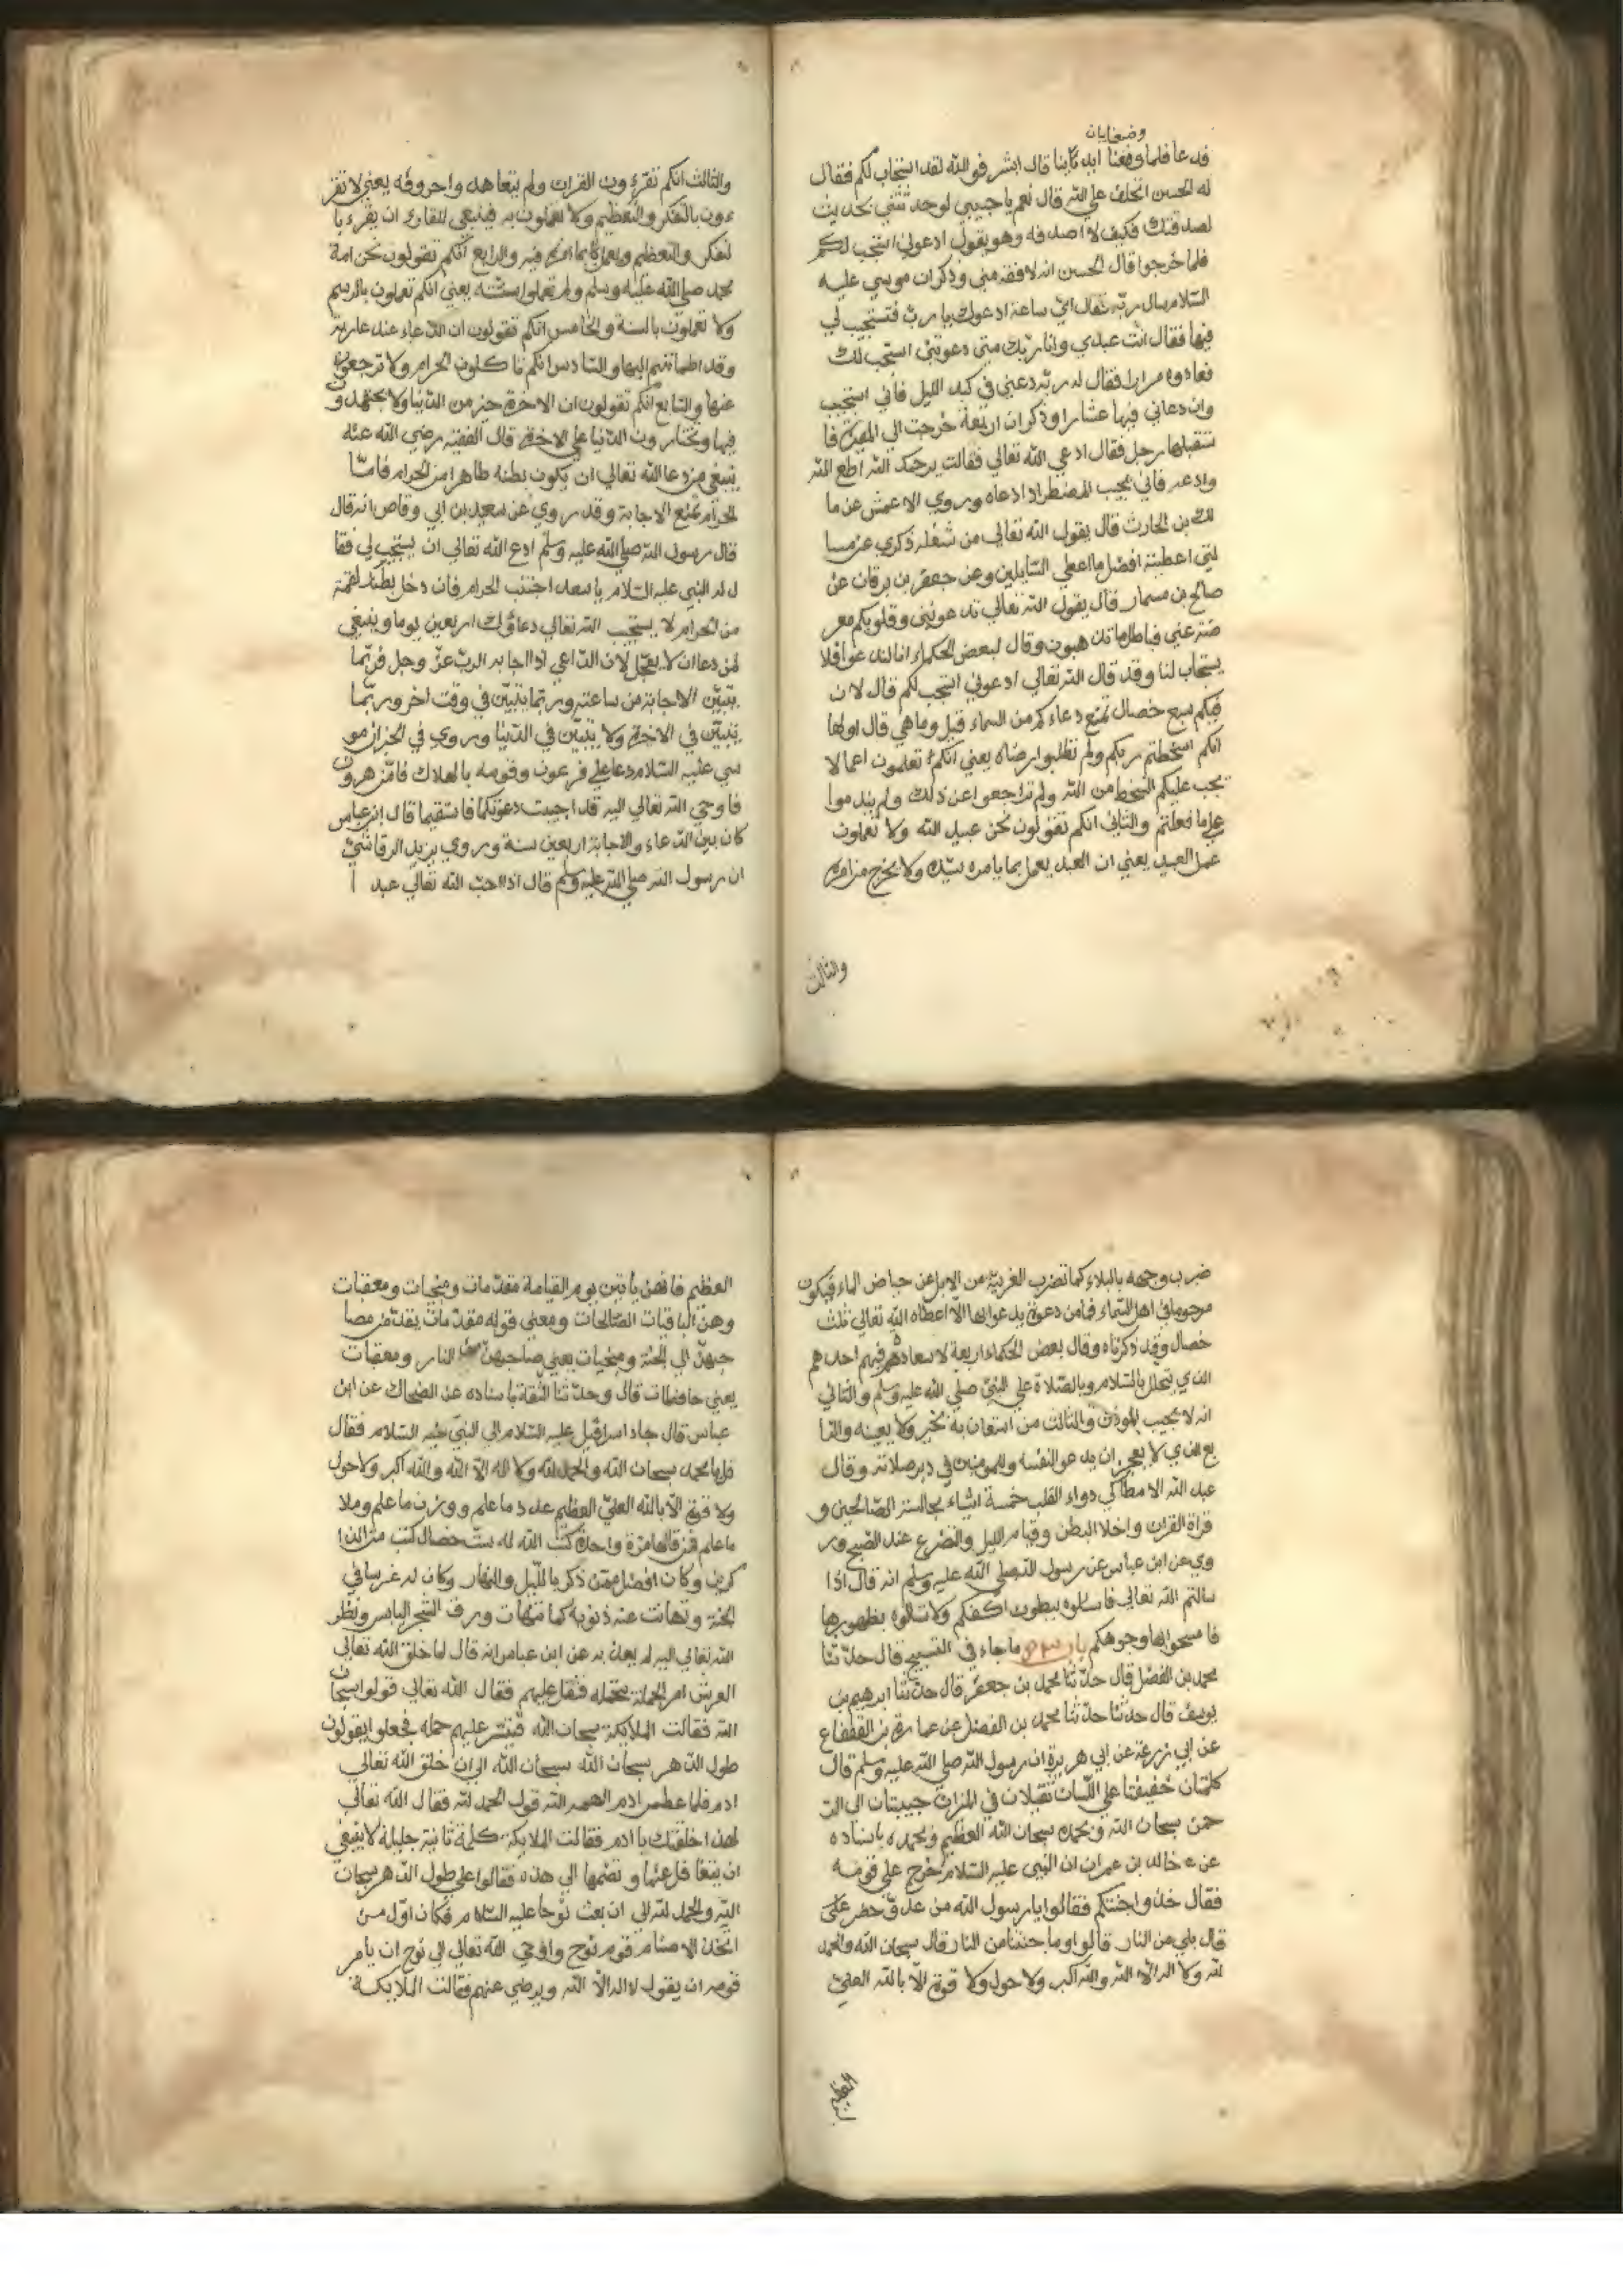 وضعايان
قد عا فلما وقعنا ايد كأبنا قال ابشر فوالله لقد استجاب لكم فقال
له الحسن اتحلف على الله قال نعم يا حبيبي لو حدثتني بحديث
لصدقتك فكيف لا اصدقه وهو يقول ادعوني استجب لكم
فلما خرجوا قال الحسن انه لا فقه مني وذكر ان موسي عليه
السلام سال ربه فقال اي ساعة ادعوك يا رب فتستجيب لي
فيها فقال انت عبدي وانا ربك متي دعوتني استجب لك
فعادوه مرارا فقال له ربه دعني في كبد الليل فاني استجيب
وان دعاني فيها عشارا وذكر ان اربعة خرجت الي المقبرة فا
ستقبلها رجل فقال ادعي الله تعالي فقالت يرحمك الله اطع الله
وادعه فاني يجيب المضطر اذا دعاه وروي الاعمش عن ما
لك بن الحارث قال يقول الله تعالي من شغله ذكري عن مسا
لتي اعطيته افضل ما اعطي السايلين وعن جعفر بن برقان عن
صالح بن مسمار قال يقول الله تعالي تدعونني وقلوبكم معر
ضة عني فباطل ما تذهبون وقال لبعض الحكماء انا لندعوا فلا
يستجاب لنا وقد قال الله تعالي ادعوني استجب لكم قال لان
فيكم سبع خصال تمنع دعاءكم من السماء قيل وما هي قال اولها
انكم اسخطتم ربكم ولم تطلبوا رضاه يعني انكم تعلمون اعمالا
تجب عليكم السخط من الله ولم تراجعوا عن ذلك ولم يندموا
علي ما فعلتم والثاني انكم تقولون نحن عبيد الله ولا تعملون
عمل العبيد يعني ان العبد يعمل بما يامره سيده ولا يخرج من امره
والثالث
والثالث انكم تقرءون القران ولم يتعاهدوا حروفه يعني لا تقر
ءون بالتفكر والتعظيم ولا تعملون به فينبغي للقاري ان يقرء با
لتفكر والتعظيم ويعمل بما امر فيه والرابع انكم تقولون نحن امة
محمد صلي الله عليه وسلم ولم تعملوا بسنته يعني انكم تعملون بالرسم
ولا تعملون بالسنة والخامس انكم تقولون ان الدعاء عند عارية
وقد اطماننتم اليها والسادس انكم تاكلون الحرام ولا ترجعون
عنها والسابع انكم تقولون ان الاخرة خير من الدنيا ولا يجتهدون
فيها وتختارون الدنيا علي الاخرة قال الفقيه رضي الله عنه
ينبغي من دعا الله تعالي ان يكون بطنه طاهرا من الحرام فاما
الحرام تمنع الاجابة وقد روي عن سعيد بن ابي وقاص انه قال
قال رسول الله صلي الله عليه وسلم ادع الله تعالي ان يستجب لي فقا
ل له النبي عليه السلام يا سعد اجتنب الحرام فان دخل بطنك لقمة
من الحرام لا يستجيب الله تعالي دعاؤك اربعين يوما وينبغي
لمن دعا ان لا يعجل لان الداعي اذا اجابه الرب عز وجل فربما
يتبين الاجابة من ساعته وربما يتبين في وقت اخر وربما
يتبين في الاخرة ولا يتبين في الدنيا وروي في الخبر ان مو
سي عليه السلام دعا علي فرعون وقومه بالهلاك فامن هرون
فاوحي الله تعالي اليه قد اجيبت دعوتكما فاستقيما قال ابن عباس
كان بين الدعاء والاجابة اربعين سنة وروي يزيد الرقاشي
ان رسول الله صلي الله عليه وسلم قال اذا احب الله تعالي عبدا
ضرب وجهه بالبلاء كما تضرب الغريبة من الابل عن حياض الماء فيكون
مرحوما في اهل السماء فما من دعوة يدعوا بها الا اعطاه الله تعالي ثلث
خصال وقد ذكرناه وقال بعض الحكماء اربعة لا سعادة فيهم احدهم
الذي يبخل بالسلام وبالصلاة علي النبي صلي الله عليه وسلم والثاني
انه لا يجيب الموذن والثالث من استعان به بخير ولا يعينه والرا
بع الذي لا يعجز ان يدعو النفسه وللمومنين في دبر صلاته وقال
عبد الله الانطاكي دواء القلب خمسة اشياء مجالسة الصالحين و
قراة القران واخلا البطن وقيام الليل والتضرع عند الصبح ور
وي عن ابن عباس عن رسول الله صلي الله عليه وسلم انه قال اذا
سالتم الله تعالي فاسالوه ببطون اكفكم ولا تسالوه بظهورها
فامسحوا بها وجوهكم باب ما جاء في التسبيح قال حدثنا
محمد بن الفضل قال حدثنا محمد بن جعفر قال حدثنا ابرهيم بن
يوسف قال حدثنا حدثنا محمد بن الفضل عن عمارة بن القعقاع
عن ابي زرعة عن ابي هريرة ان رسول الله صلي الله عليه وسلم قال
كلمتان خفيفتا علي اللسان ثقيلان في الميزان حبيبتان الي الر
حمن سبحان الله وبحمده سبحان الله العظيم وبحمده باسناده
عن خالد بن عمران ان النبي عليه السلام خرج علي قومه
فقال خذوا جنتكم فقالوا يا رسول الله من عدو حضر علي
قال بلي من النار قالوا وما جنتنا من النار قال سبحان الله والحمد
لله ولا اله الا الله والله اكبر ولا حول ولا قوة الا بالله العلي
العظيم
العظيم فانهن ياتين يوم القيامة مقدمات ومنجيات ومعقبات
وهن الباقيات الصالحات ومعني قوله مقدمات يقدمن صا
حبهن الي الجنة ومنجيات يعني صاحبهن من النار ومعقبات
يعني حافظات قال وحدثنا الثقة باسناده عن الضحاك عن ابن
عباس قال جاء اسرافيل عليه السلام الي النبي عليه السلام فقال
قل يا محمد سبحان الله والحمد لله ولا اله الا الله والله اكبر ولا حول
ولا قوة الا بالله العلي العظيم عدد ما علم ووزن ما علم وملا
ما علم فمن قالها مرة واحدة كتب الله له ست خصال كتب من الذا
كرين وكان افضل ممن ذكر بالليل والنهار وكان له غرسا في
الجنة وتهاتت عنه ذنوبه كما تتهات ورق الشجر اليابس ونظر
الله تعالي اليه لم يعذبه عن ابن عباس انه قال لما خلق الله تعالي
العرش امر الحملة بحمله فثقل عليهم فقال الله تعالي قولوا سبحان
الله فقالت الملايكة سبحان الله فيسر عليهم حمله فجعلوا يقولون
طول الدهر سبحان الله سبحان الله الي ان خلق الله تعالي
ادم فلما عطس ادم الهمه الله قول الحمد لله فقال الله تعالي
لهذا خلقتك يا ادم فقالت الملايكة كلمة ثانية جليلة لا ينبغي
ان نتغافل عنها ونضمها الي هذه فقالوا علي طول الدهر سبحان
الله والحمد لله الي ان بعث نوحا عليه السلام فكان اول من
اتخذ الاصنام قوم نوح واوحي الله تعالي الي نوح ان يامر
قومه ان يقول لا اله الا الله ويرضي عنهم فقالت الملايكة